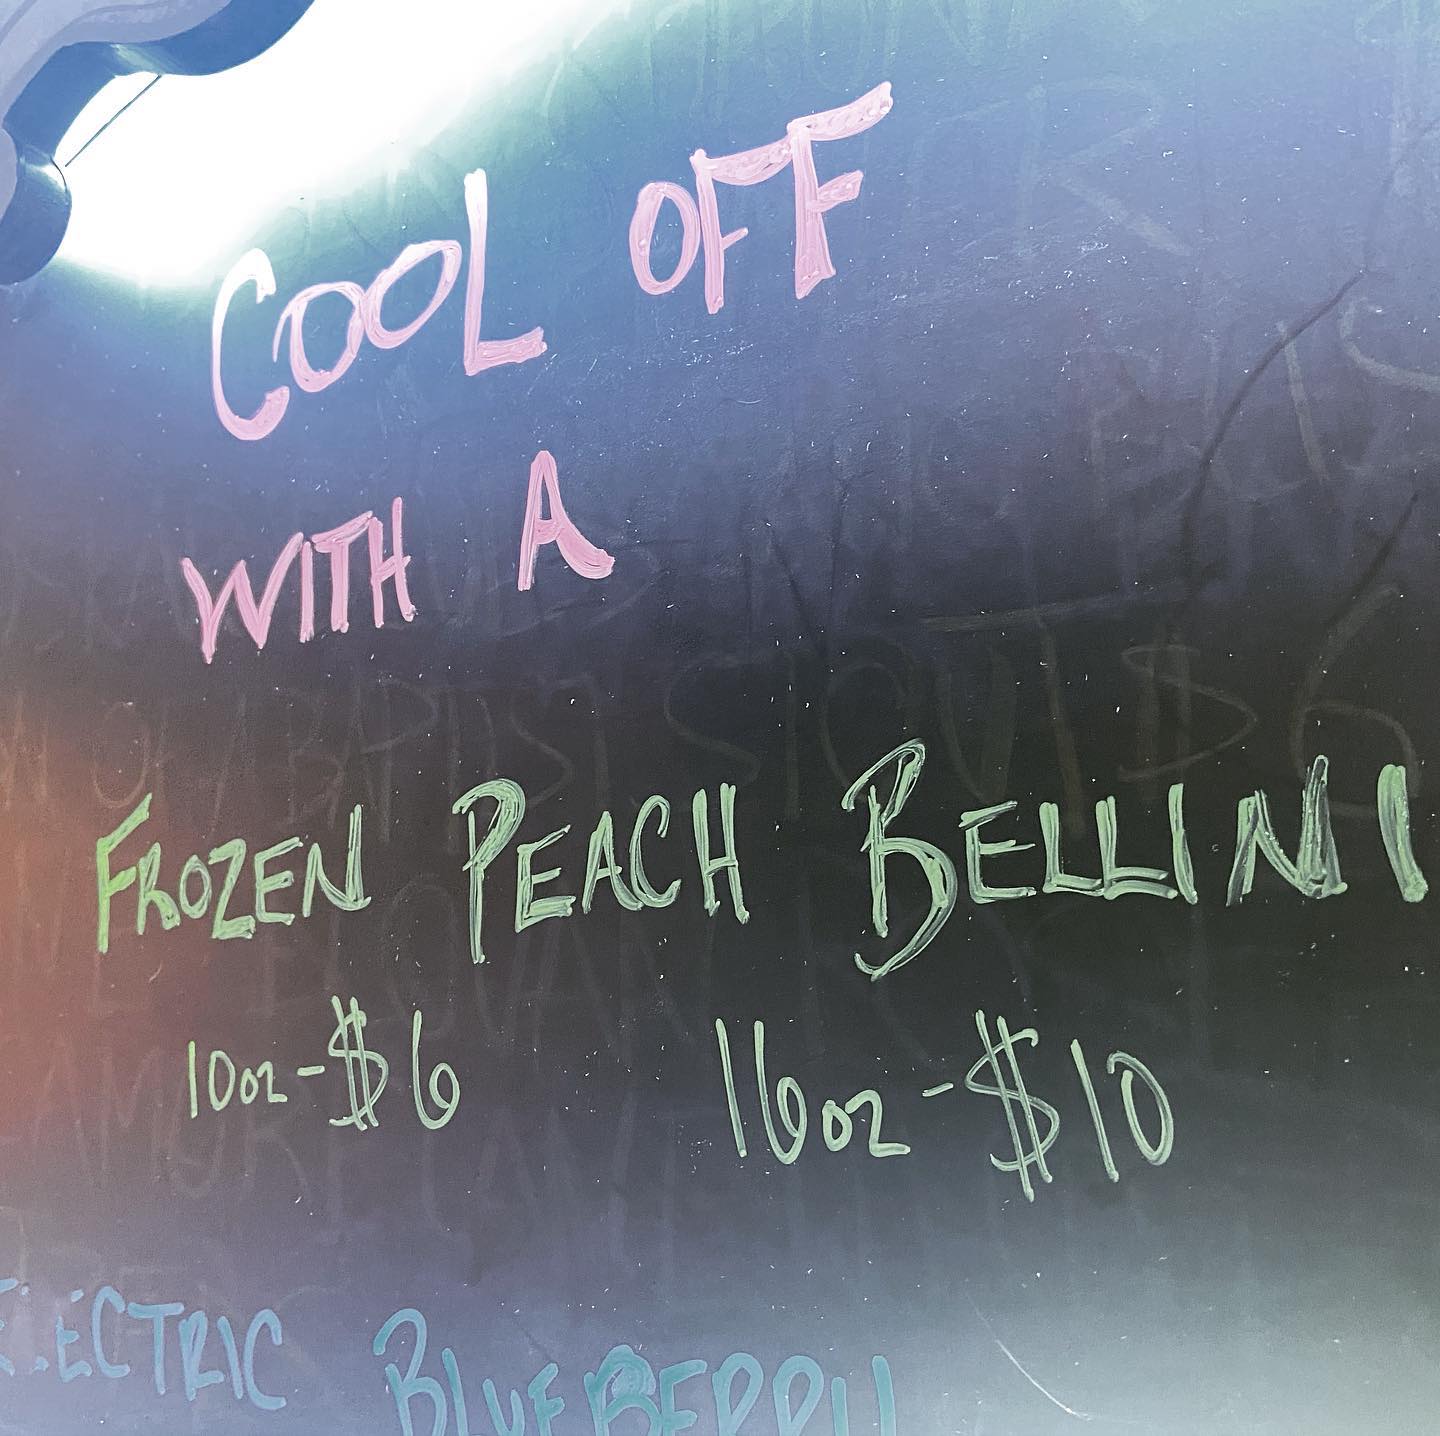 COOL OFF
WITH A
FROZEN PEACH BELLINI
10oz-$6 16oz-$10
ELECTRIC BLUEBERRY